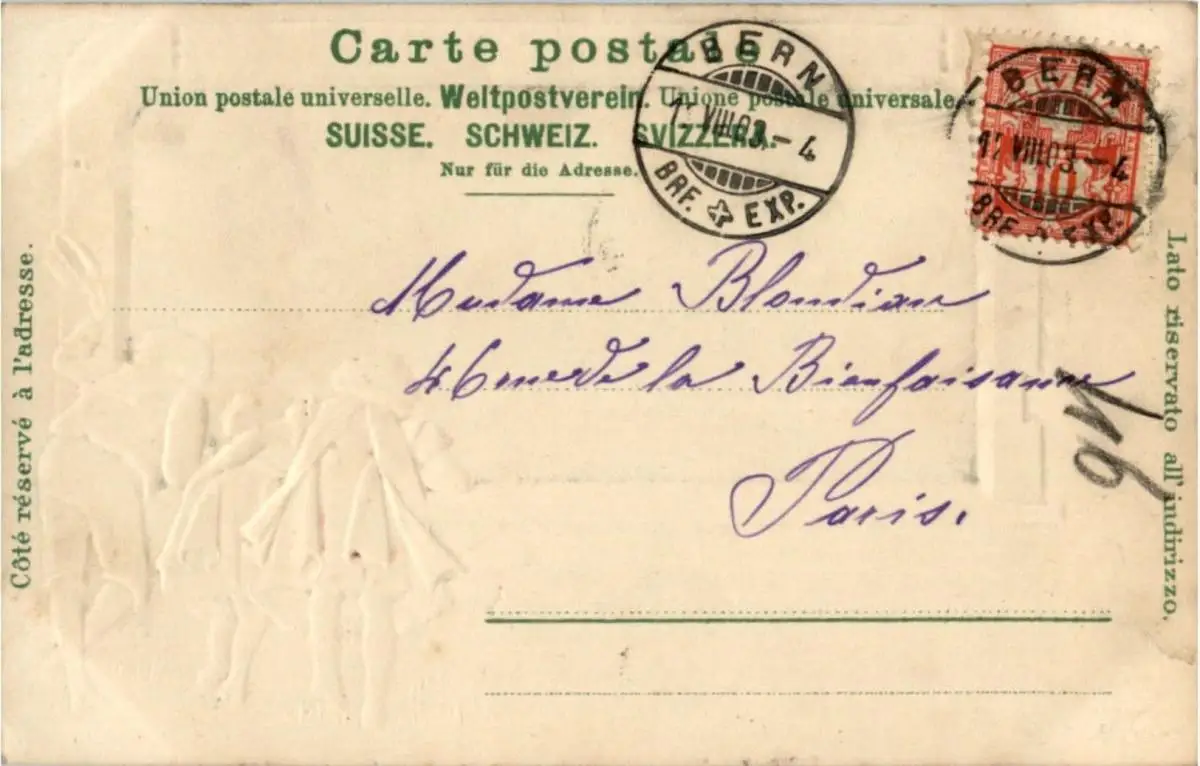 Carte postale
Union postale universelle. Weltpostverein. Unione postale universale.
SUISSE. SCHWEIZ. SVIZZERA.
Nur für die Adresse.
BERN
VIII.03.–4
BRF. EXP.
BERN
17.VIII.03.–4
BRF. EXP.
10
Côté réservé à l'adresse.
Lato riservato all'indirizzo.
Madame
de la Bienfaisance
Paris.